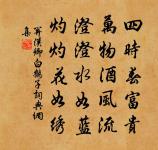 四時春富貴
萬物酒風流
澄澄水如藍
灼灼花如綉
胥漢卿白鶴子詞典網
集